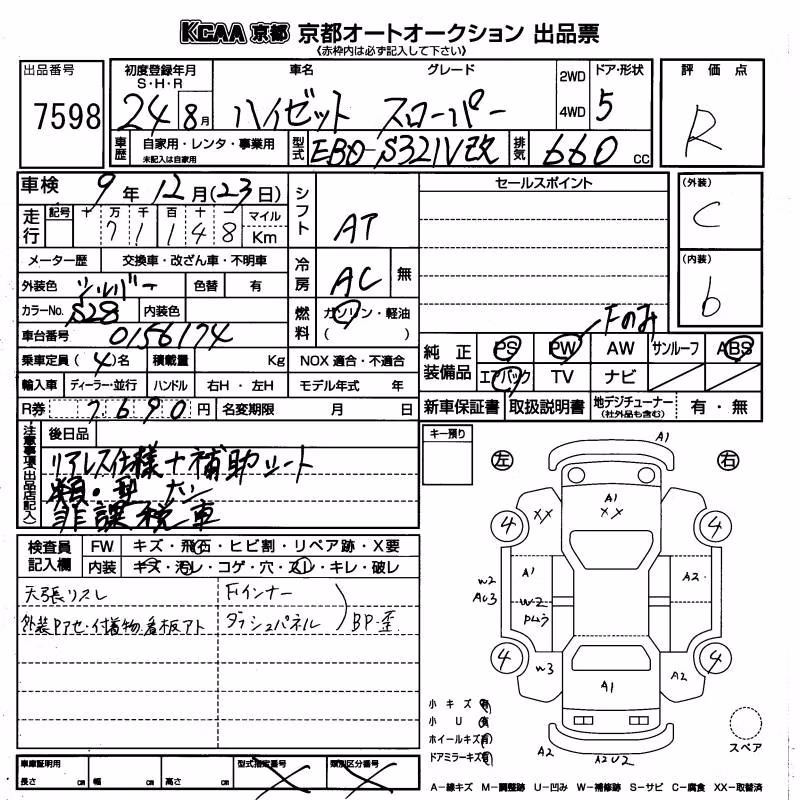 KCAA 京都 京都オートオークション 出品票
《赤枠内は必ず記入して下さい》
出品番号 初度登録年月 車名 グレード 2WD ドア・形状 評価点
S・H・R
7598 24 8月 ハイゼット スローパー 4WD 5 R
車歴 自家用・レンタ・事業用 型式 EBD-S321V改 排気 660 CC
未記入は自家用
車検 9年 12月(23日) シフト AT セールスポイント (外装)
C
走行 記号 十 万 千 百 十 一 マイル
7 1 1 4 8 Km
メーター歴 交換車・改ざん車・不明車 冷房 AC 無 (内装)
外装色 シルバー 色替 有 b
カラーNo. S28 内装色 燃料 ガソリン・軽油
( )
車台番号 0156174 Fのみ
乗車定員 (4)名 積載量 Kg NOX 適合・不適合 純正装備品 PS PW AW サンルーフ ABS
輸入車 ディーラー・並行 ハンドル 右H・左H モデル年式 年 エアバック TV ナビ
R券 7690円 名変期限 月 日 新車保証書 取扱説明書 地デジチューナー 有・無
(社外品も含む)
注意事項(出品店記入) 後日品 キー預り
リアレス仕様+補助シート
類・型ナシ
非課税車
左 右
A1
A1
XX XX
4 4
A1 A2
W2
AU3
W2
4 4
W3 A2
A1
A2 A2U2
検査員記入欄 FW キズ・飛石・ヒビ割・リペア跡・X要
内装 キズ・汚レ・コゲ・穴・スレ・キレ・破レ
天張リスレ Fインナー
ダッシュパネル BP・歪
小キズ 有
小U 有
ホイールキズ 有
ドアミラーキズ 有
スペア
車庫証明用 型式指定番号 類別区分番号
長さ cm 幅 cm 高さ cm
A-線キズ M-調整跡 U-凹み W-補修跡 S-サビ C-腐食 XX-取替済